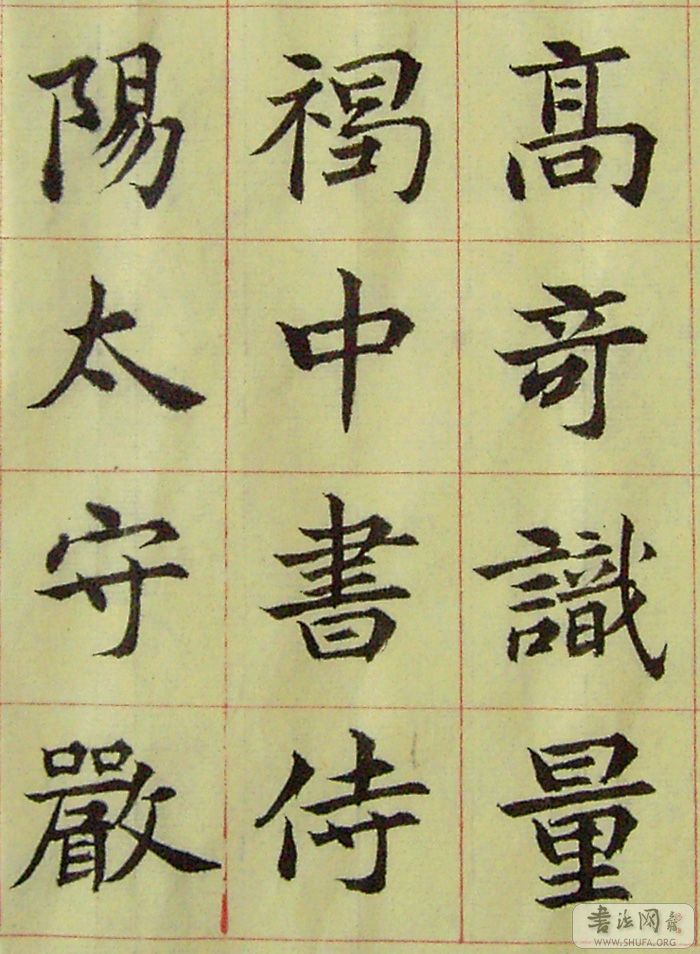 高奇識量
褐中書侍
陽太守嚴
书法网
WWW.SHUFA.ORG